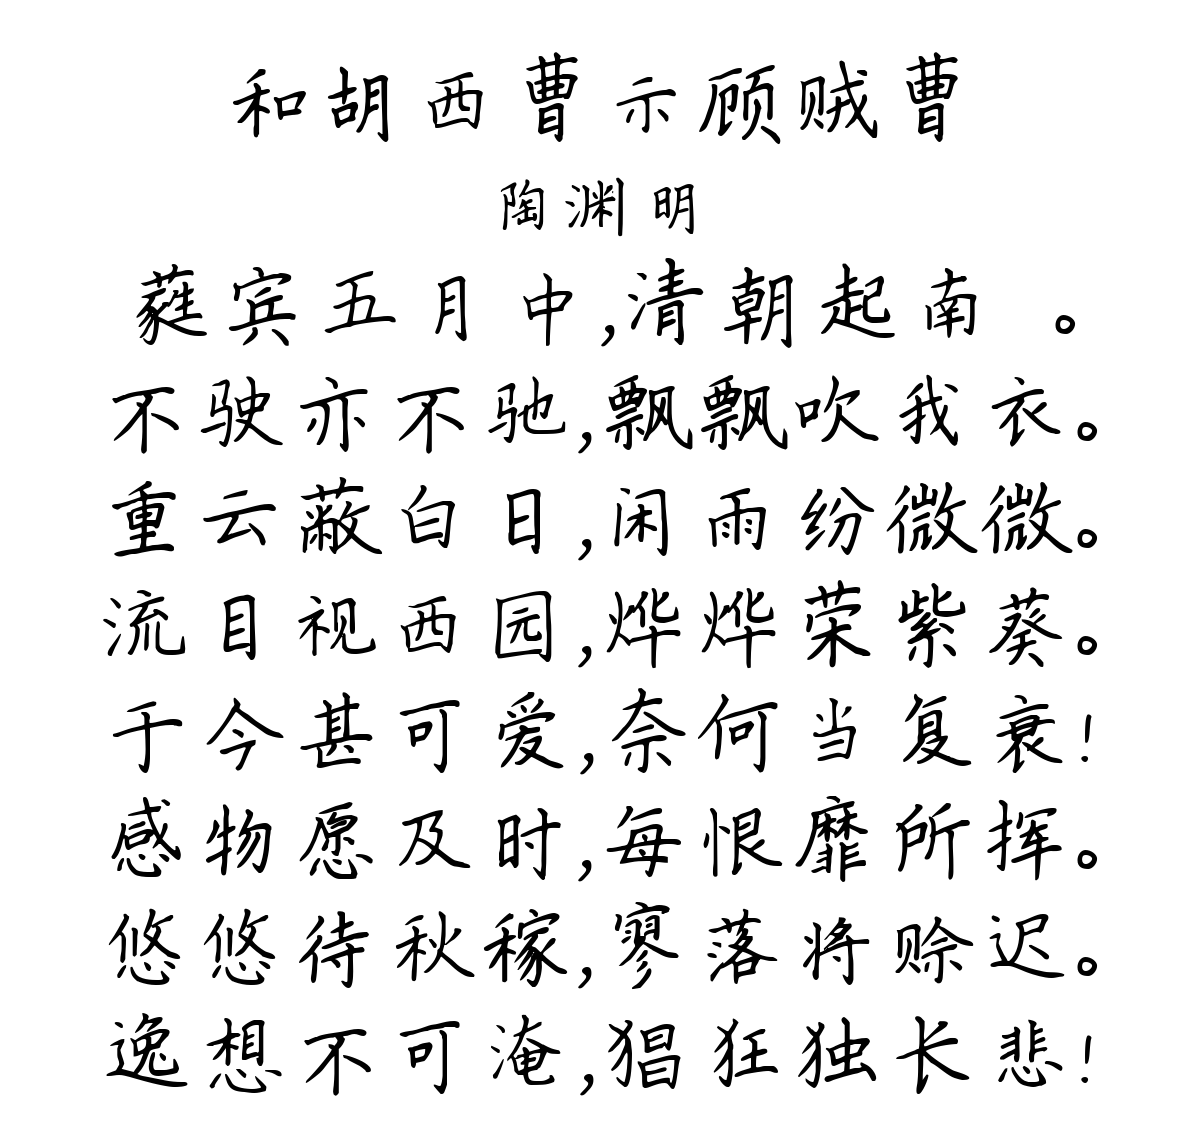 和胡西曹示顾贼曹
陶渊明
蕤宾五月中,清朝起南 。
不驶亦不驰,飘飘吹我衣。
重云蔽白日,闲雨纷微微。
流目视西园,烨烨荣紫葵。
于今甚可爱,奈何当复衰!
感物愿及时,每恨靡所挥。
悠悠待秋稼,寥落将赊迟。
逸想不可淹,猖狂独长悲!